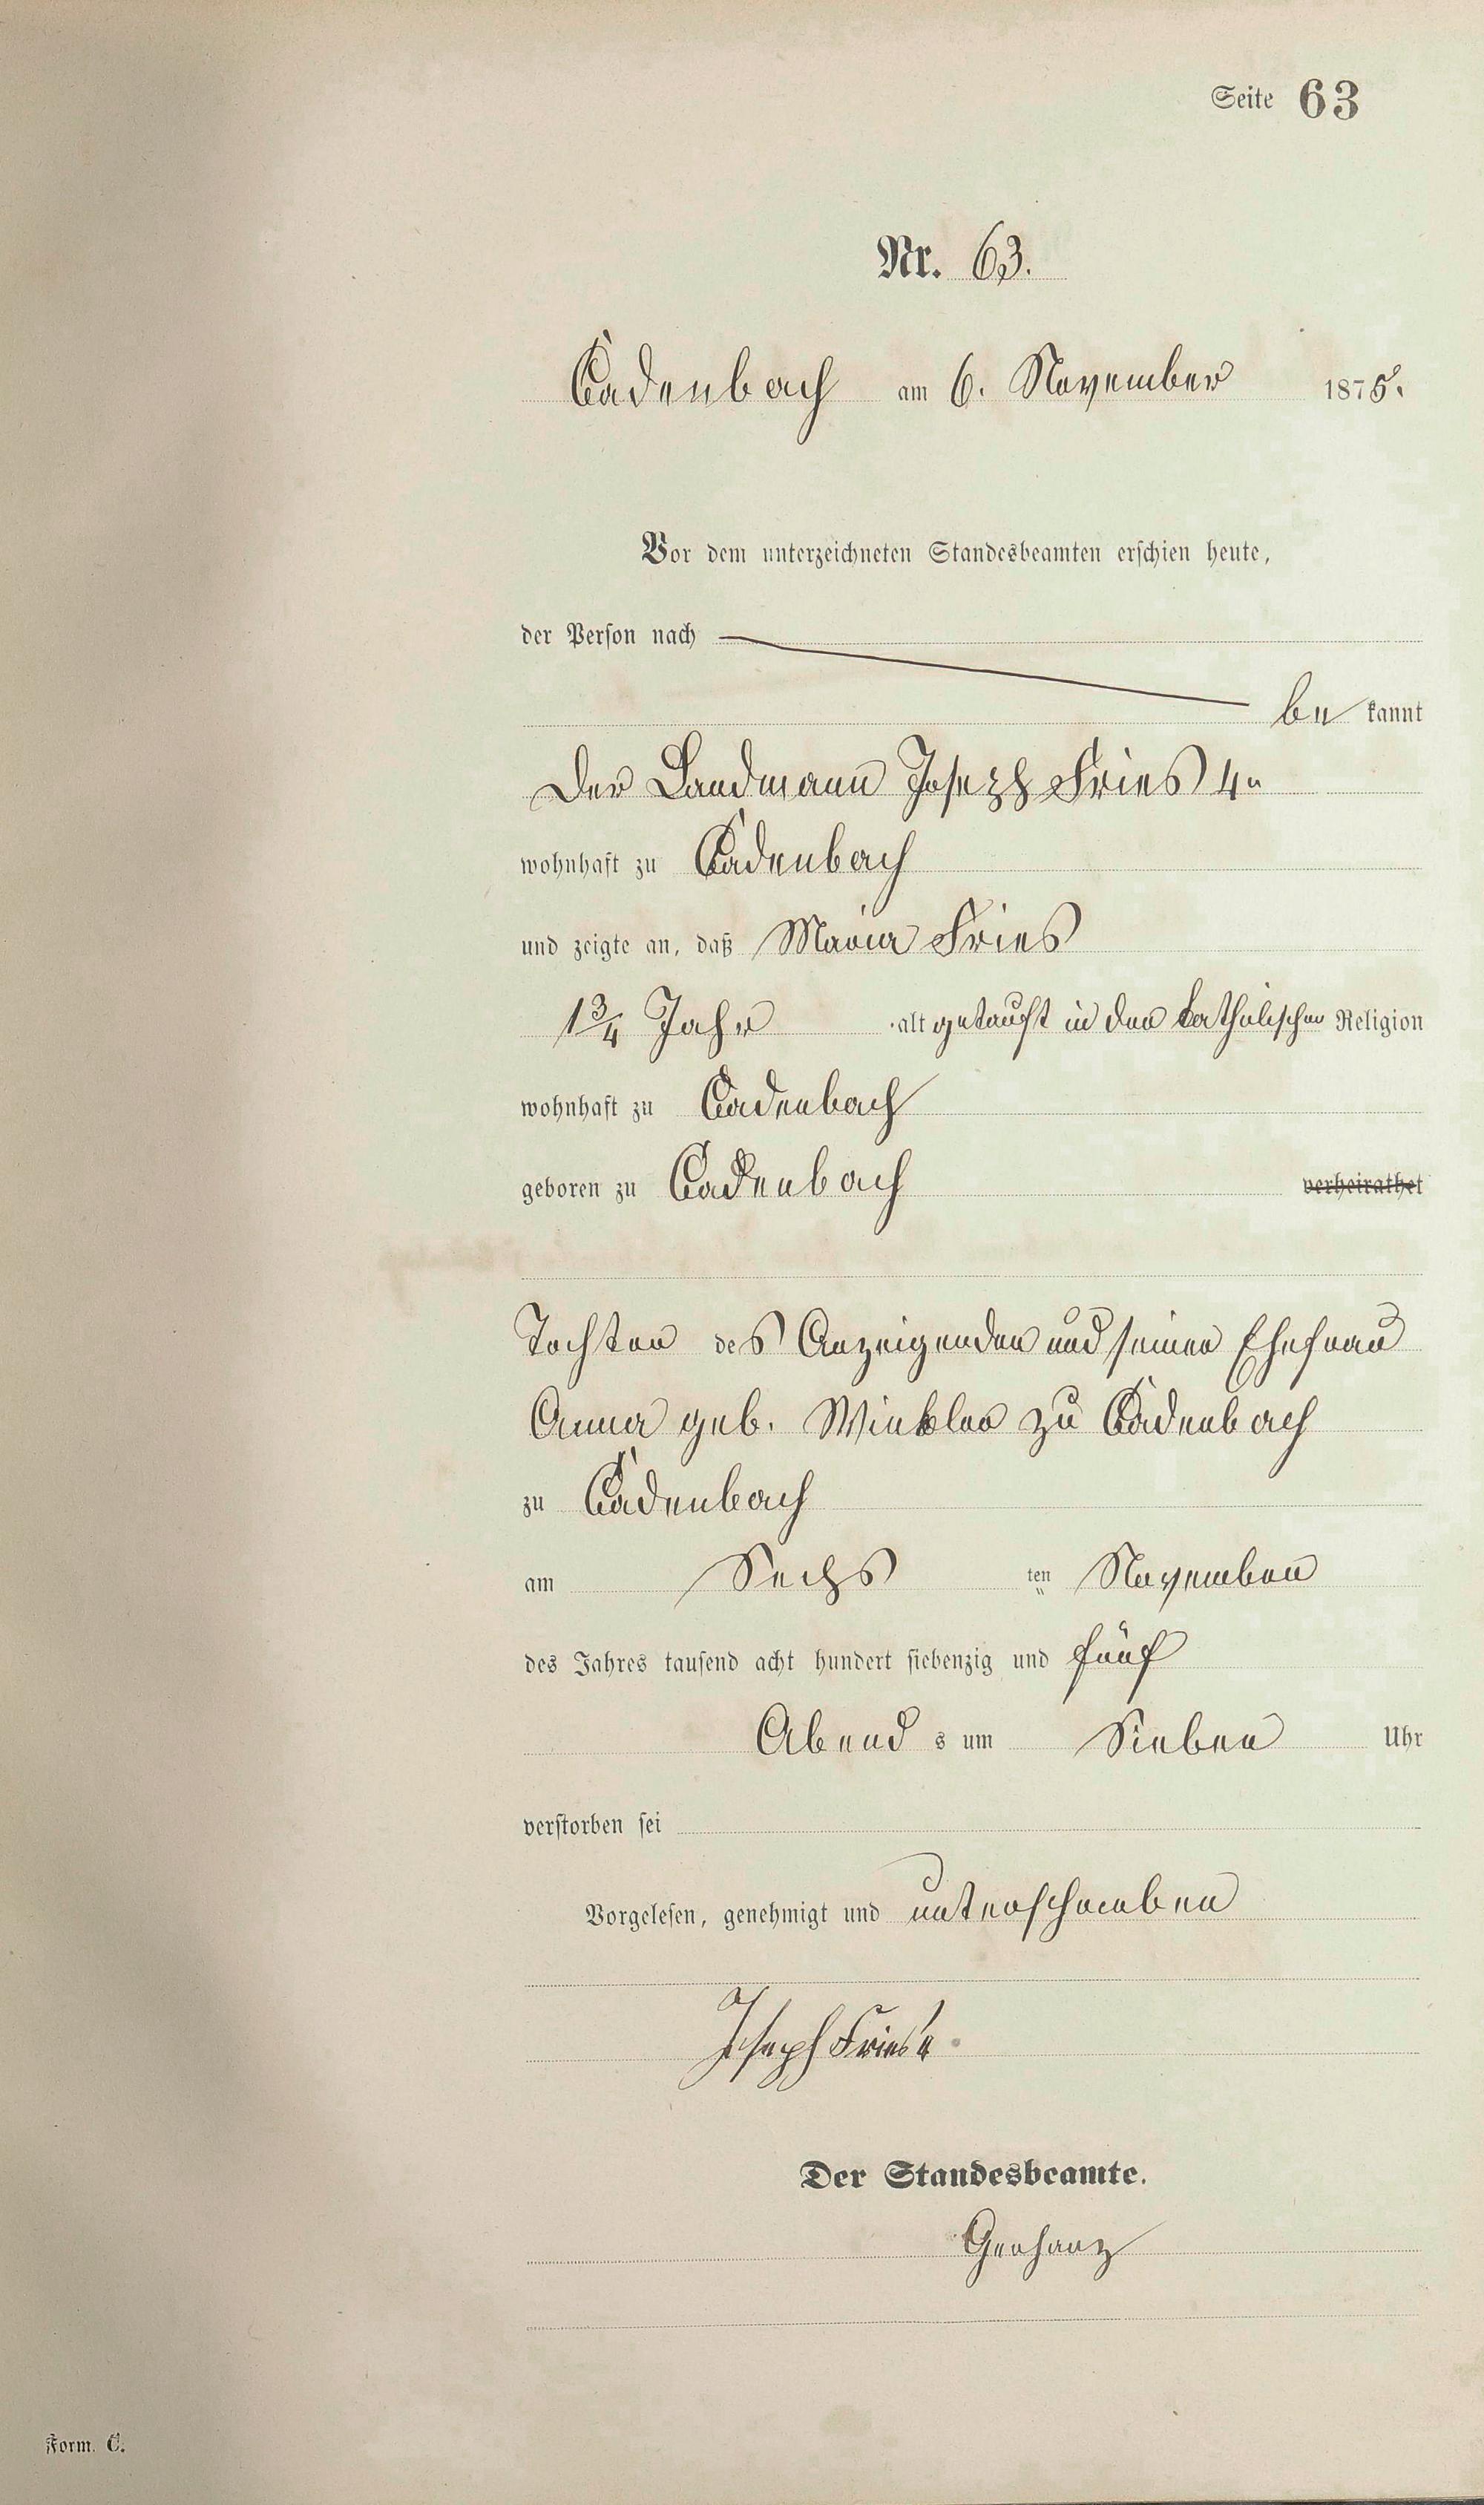 Seite 63
Nr. 63.
Cadenbach am 6. November 1875.
Vor dem unterzeichneten Standesbeamten erschien heute,
der Person nach
be kannt
Der Landmann Joseph Fries 4r
wohnhaft zu Cadenbach
und zeigte an, daß Maria Fries
1 3/4 Jahr alt getauft in der katholischen Religion
wohnhaft zu Cadenbach
geboren zu Cadenbach verheirathet
Tochter des Anzeigenden und seiner Ehefrau
Anna geb. Winkler zu Cadenbach
zu Cadenbach
am Sechs ten November
des Jahres tausend acht hundert siebenzig und fünf
Abend s um Sieben Uhr
verstorben sei
Vorgelesen, genehmigt und unterschrieben
Joseph Fries 4
Der Standesbeamte.
Gerharz
Form. C.